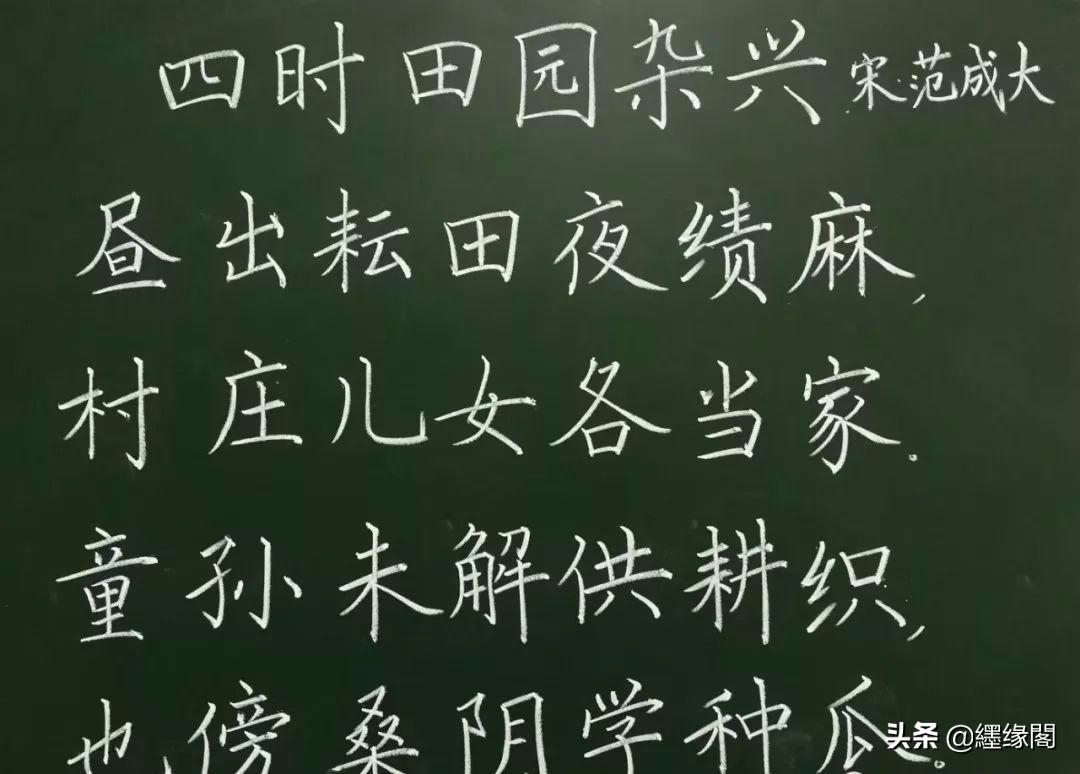 四时田园杂兴 宋·范成大
昼出耘田夜绩麻,
村庄儿女各当家。
童孙未解供耕织,
也傍桑阴学种瓜。
头条 @纆缘閣